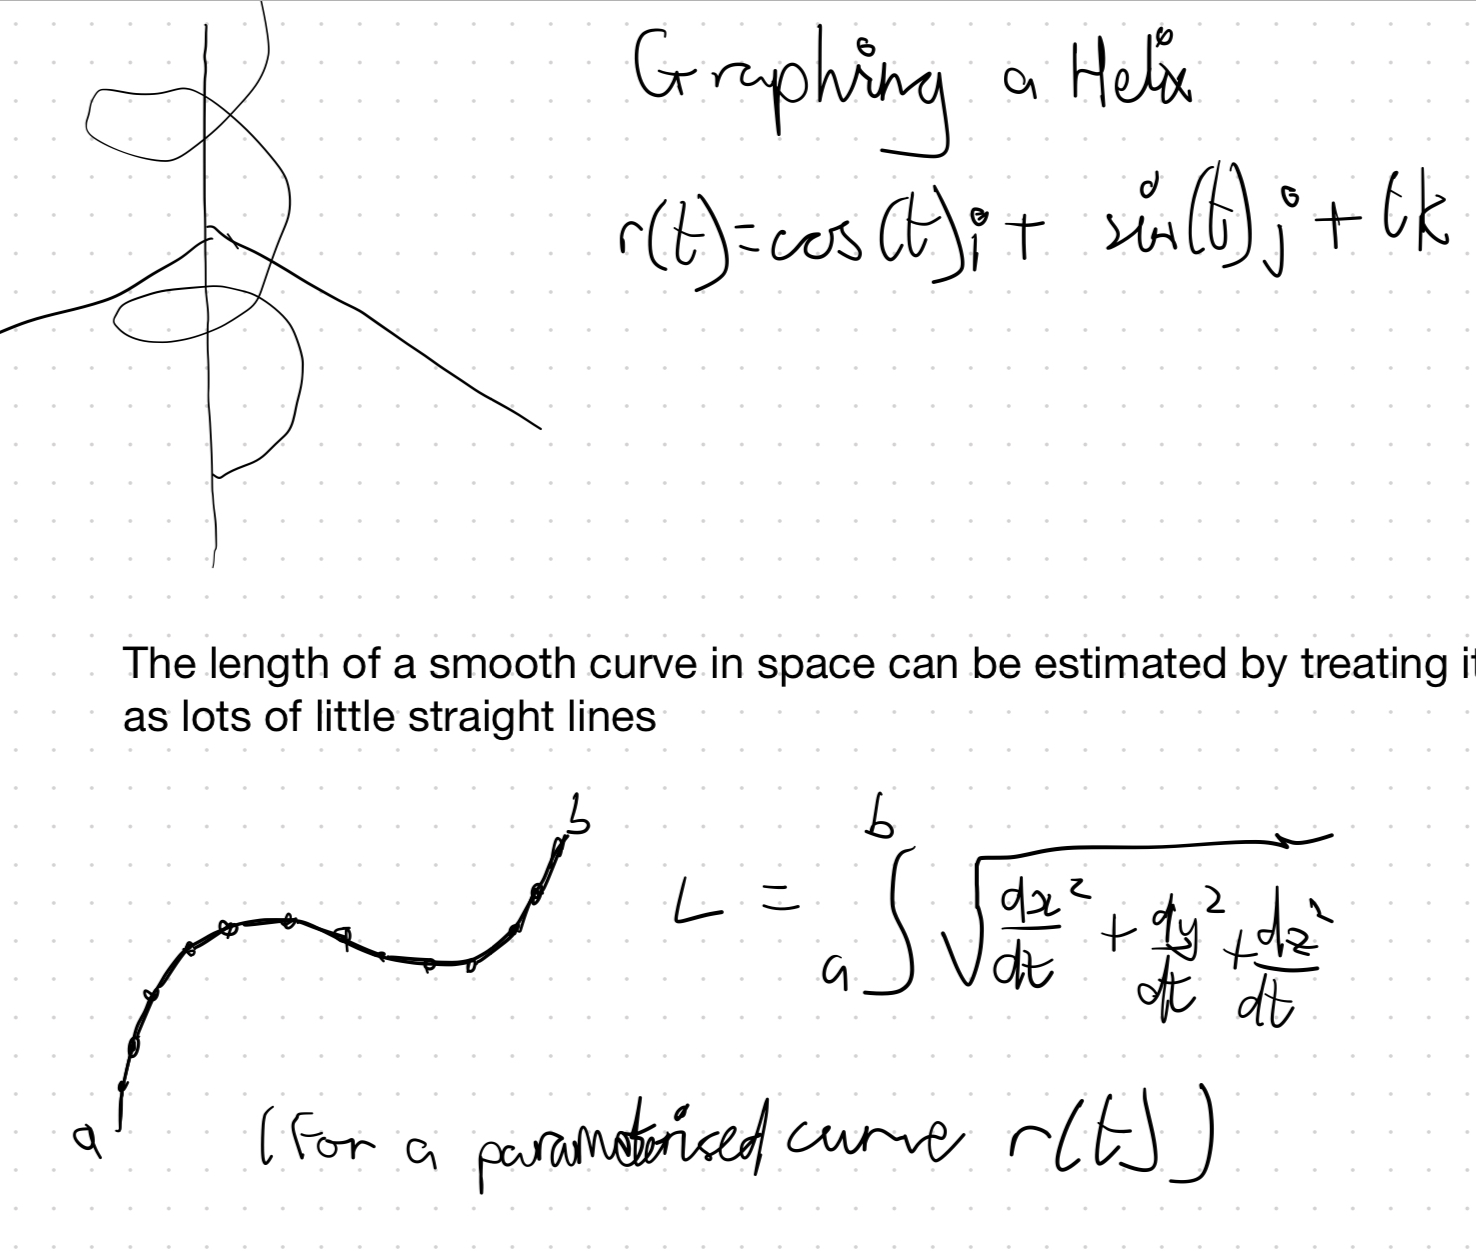 Graphing a Helix
r(t)=cos(t)i+ sin(t)j+tk
The length of a smooth curve in space can be estimated by treating it
as lots of little straight lines
b
a
L = ∫ₐᵇ √(dx²/dt + dy²/dt + dz²/dt)
(For a parameterised curve r(t))